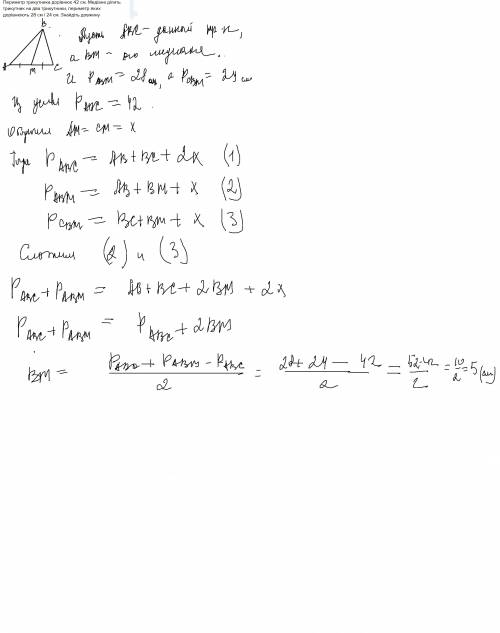 Периметр трикутника дорівнює 42 см. Медіана ділить
трикутник на два трикутники, периметр яких
дорівнюють 28 см і 24 см. Знайдіть довжину
B
A M C
Пусть ABC - данный тр-к,
а BM - его медиана.
И P ABM = 28 см, а P CBM = 24 см
Из усл P ABC = 42.
Обозначим AM = CM = x
Тогда P ABC = AB + BC + 2x (1)
P ABM = AB + BM + x (2)
P CBM = BC + BM + x (3)
Сложим (2) и (3)
P ABC + P ABM = AB + BC + 2BM + 2x
P ABC + P ABM = P ABC + 2BM
BM = (P ABM + P ABM - P ABC)/2 = (28 + 24 - 42)/2 = (52-42)/2 = 10/2 = 5 (см)